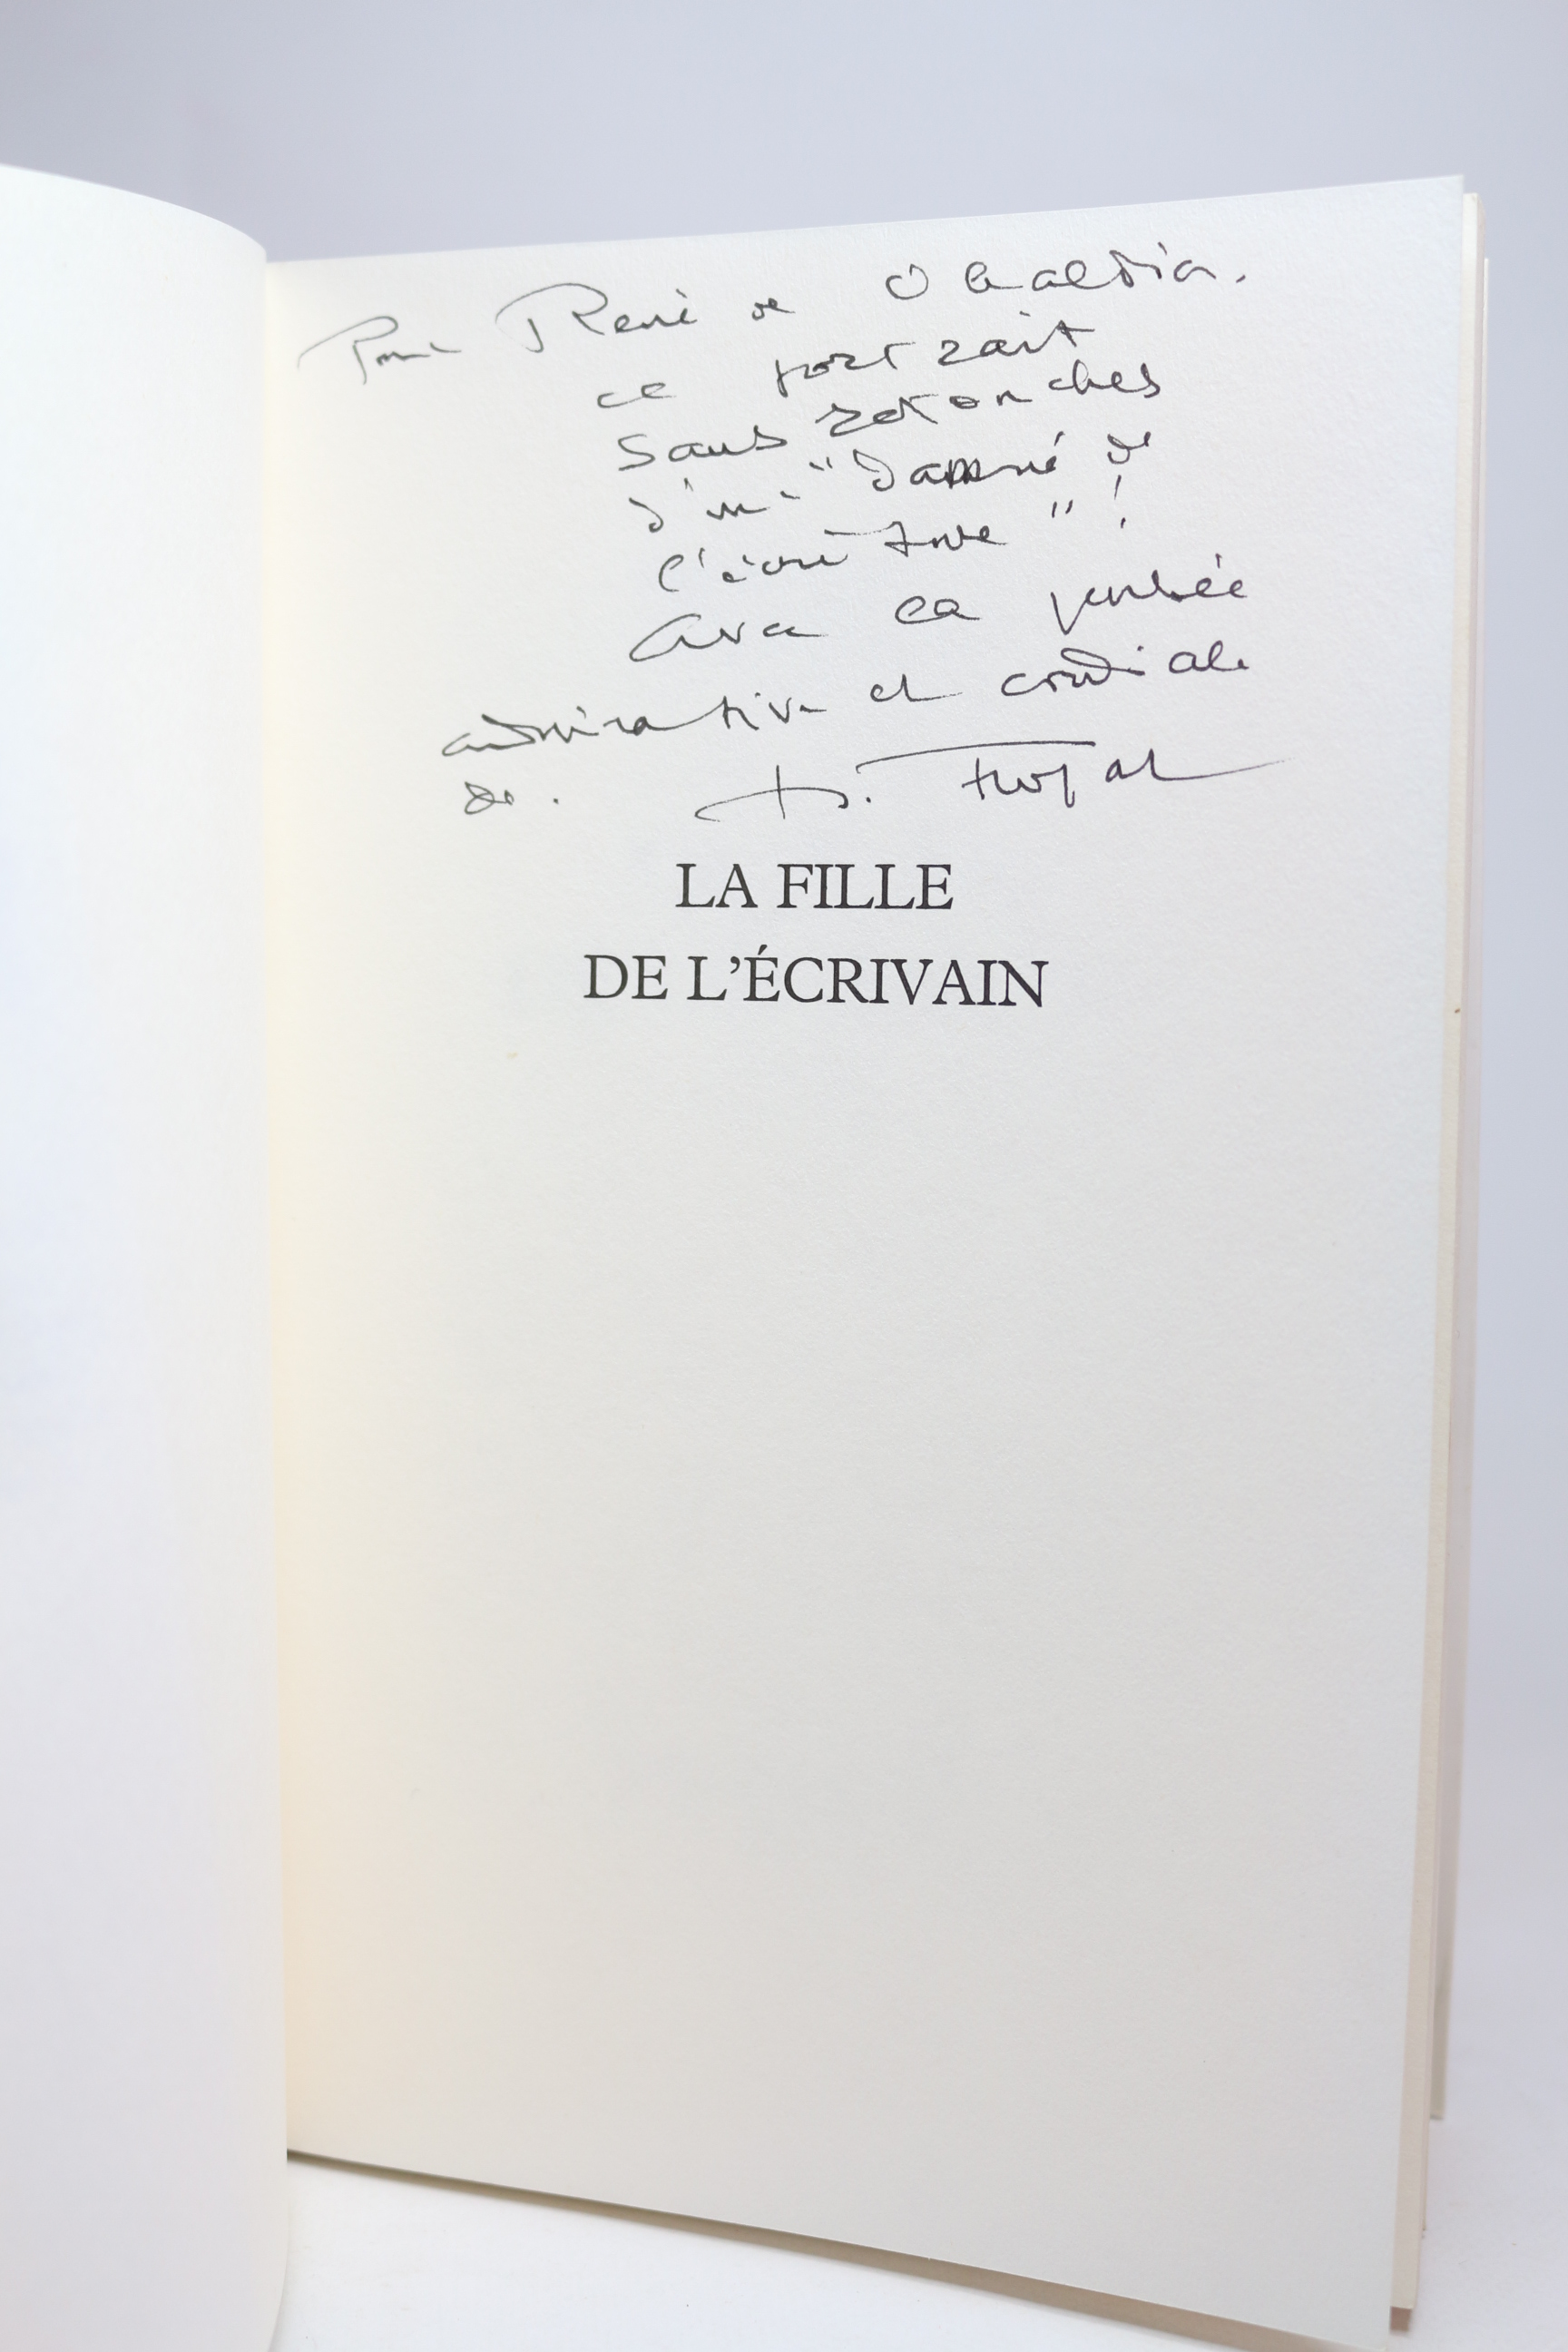 Pour René de Obaldia.
ce portrait
sans retouches
d'un "damné de
l'écriture" !
Avec la pensée
admirative et cordiale
de . H. Troyat
LA FILLE
DE L'ÉCRIVAIN